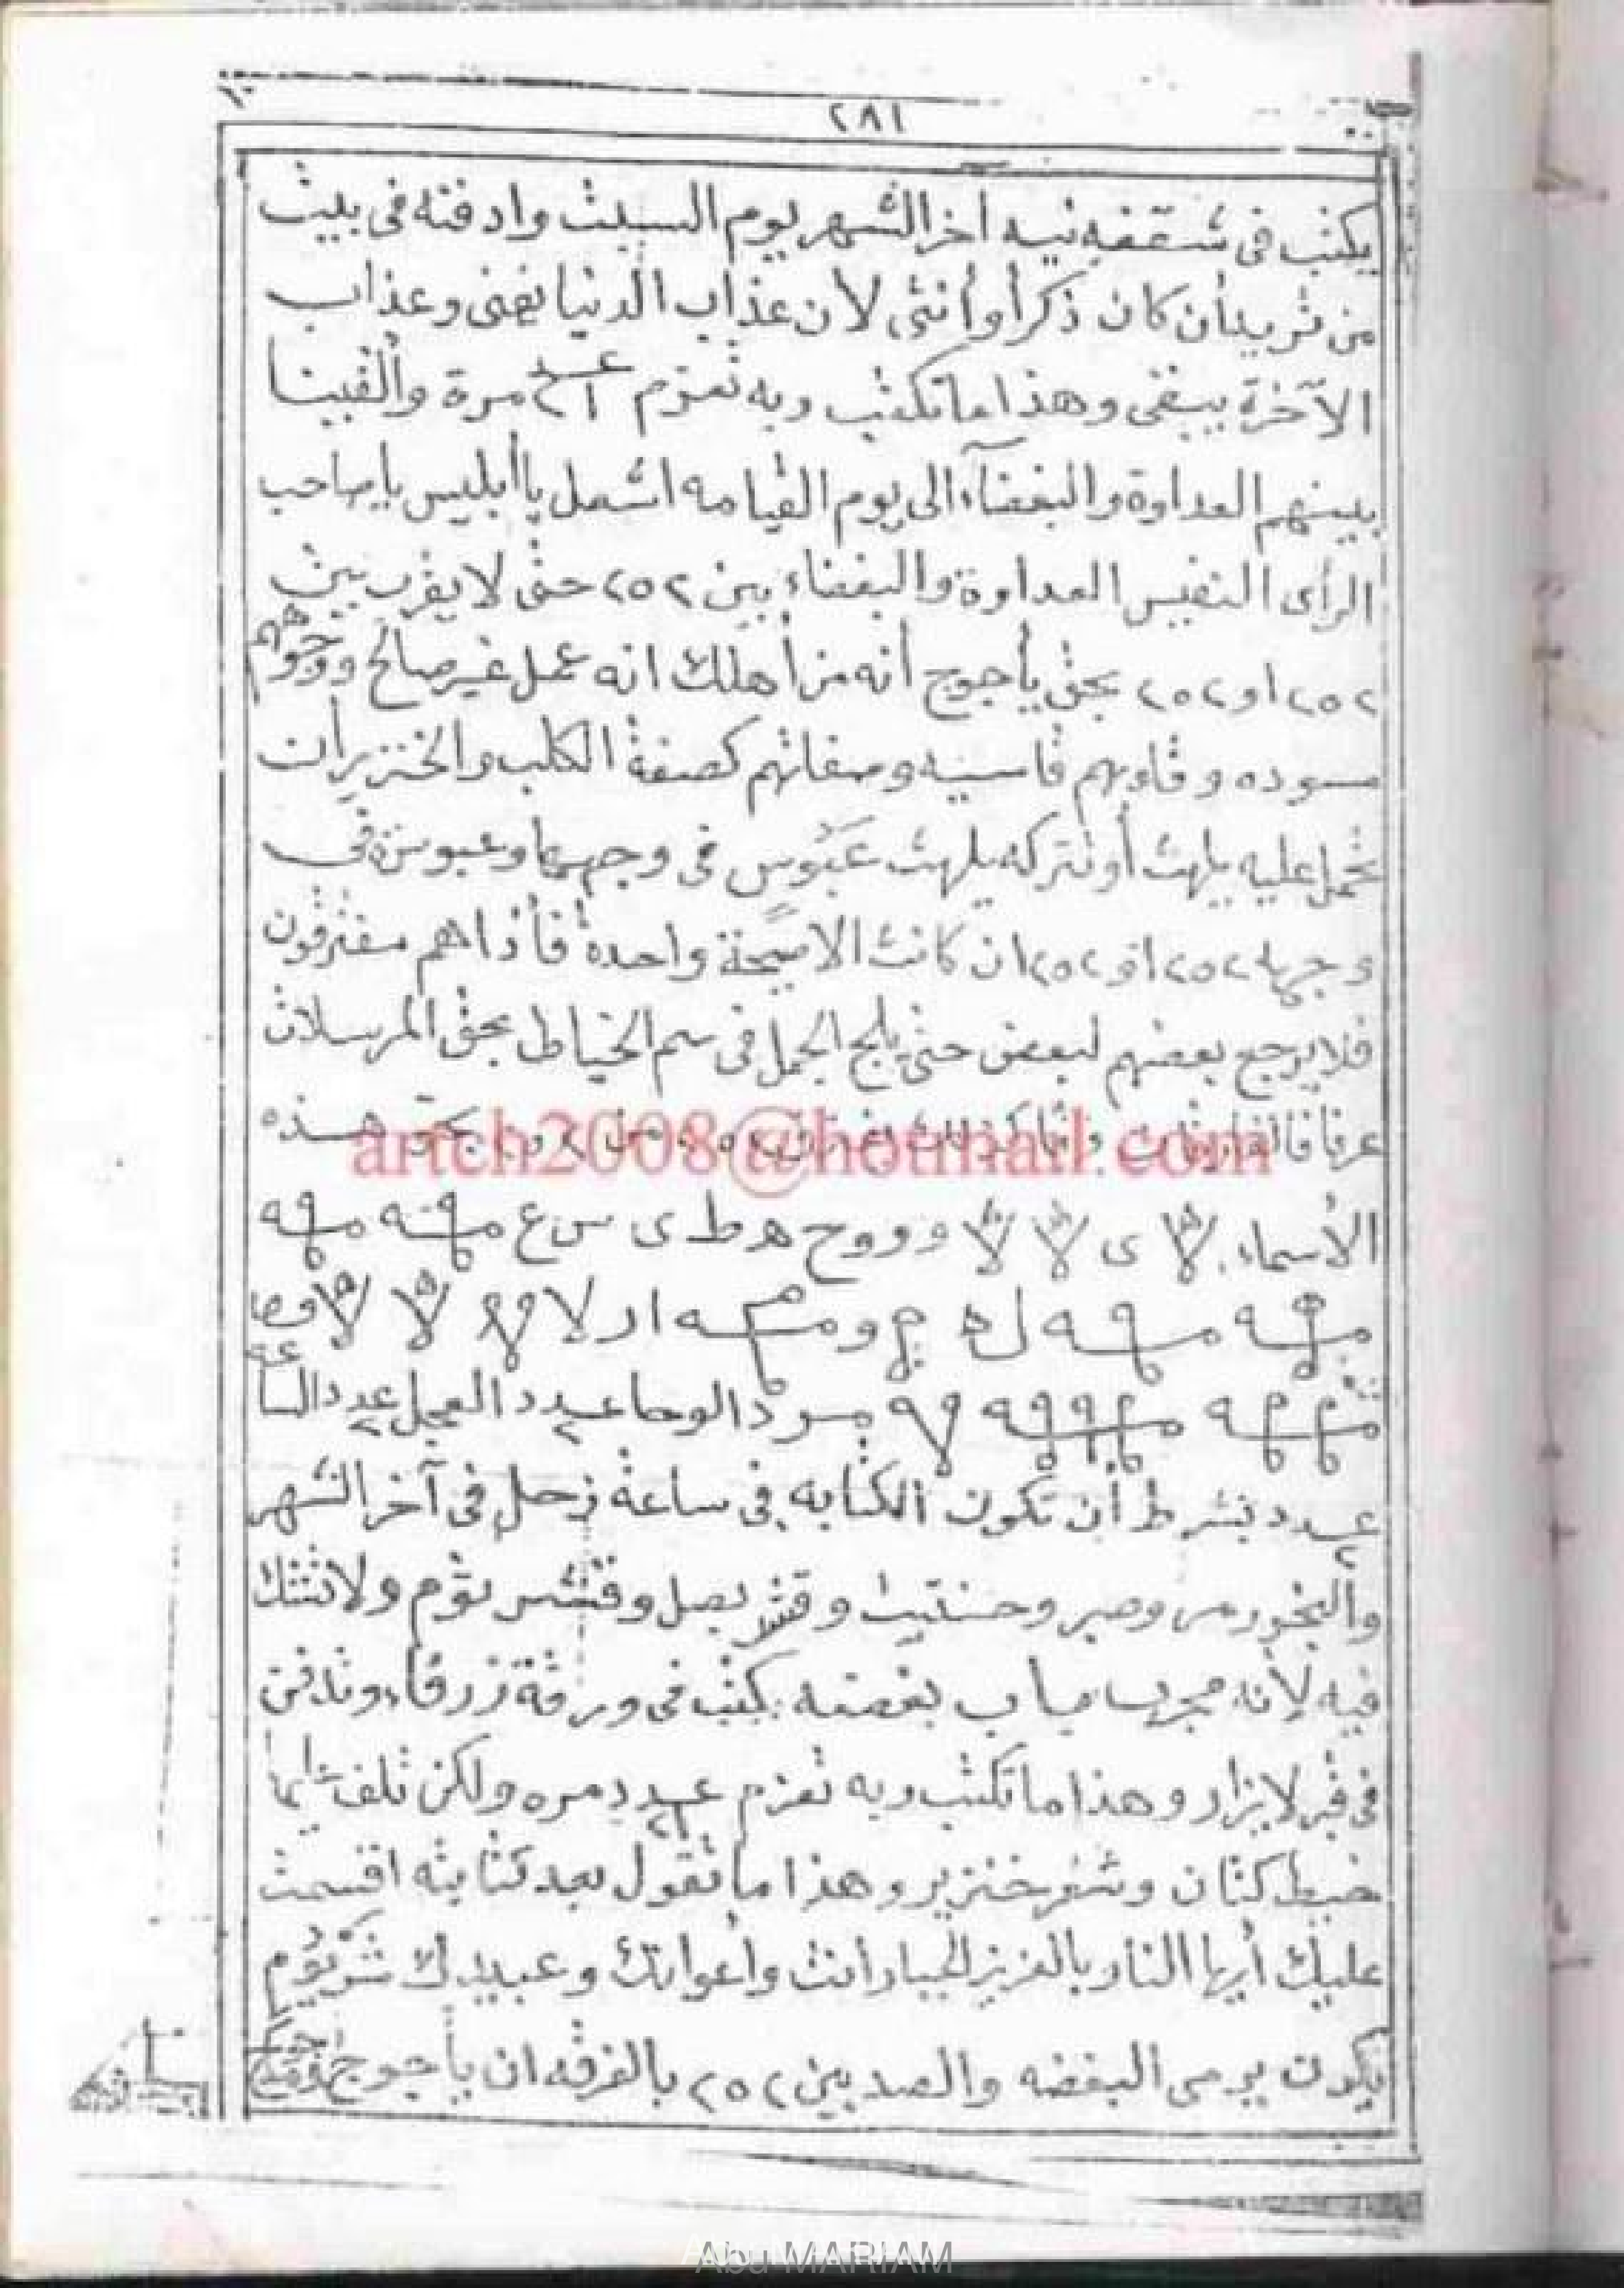 ٢٨١
يكتب فى شقفه نيه اخر الشهر يوم السبت وادفنه فى بيت
من تريد أن كان ذكرأ وأنثى لان عذاب الدنيا يفنى وعذاب
الآخرة يبقى وهذا ما تكتب وبه تعزم ٢١ مرة وألقينا
بينهم العداوة والبغضآء الى يوم القيامه اشعل ياأبليس ياصاحب
الرأى النفيس العداوة والبغضاء بين ٢٥٢ حتى لا يقرب بين
٢٥٢ او ٢٥٢ بحق يأجوج أنه من أهلك انه عمل غير صالح ووجوههم
مسوده وقلوبهم قاسيه وصفاتهم كصفة الكلب والخنزير ان
تحمل عليه يلهث أو نتركه يلهث عبوس فى وجهها وعبوس فى
وجهه ٢٥٢ او ٢٥٢ ان كانت الاصيحة واحدة فأذاهم مفترقون
فلا يرجع بعضهم لبعض حتى يلج الجمل فى سم الخياط بحق المرسلات
عرفا فالفارقات فرقا كذلك بحق هذه
artch2008@hotmail.com
الأسماء لا ى لا لا و و و ح ه ط ى س ع
الوحا عدد العجل عدد الساعه
عدد بشرط أن تكون الكتابه فى ساعة زحل فى آخر الشهر
والبخور مر وصبر وحنتيت وقشر بصل وقشر توم ولا تشك
فيه لأنه مجرب باب بغضه يكتب فى ورقة زرقاء وتدفن
فى قبر لا يزار وهذا ما تكتب وبه تعزم عدد مره ولكن تلف عليها
خيط كتان وشعر خنزير وهذا ما تقول بعد كتابته اقسمت
عليك أيها النار بالعزيز الجبار أنت وأعوانك وعبيدك
يكون يرمى البغضه والصد بين ٢٥٢ بالفرقه ان يأجوج
Abu MARIAM